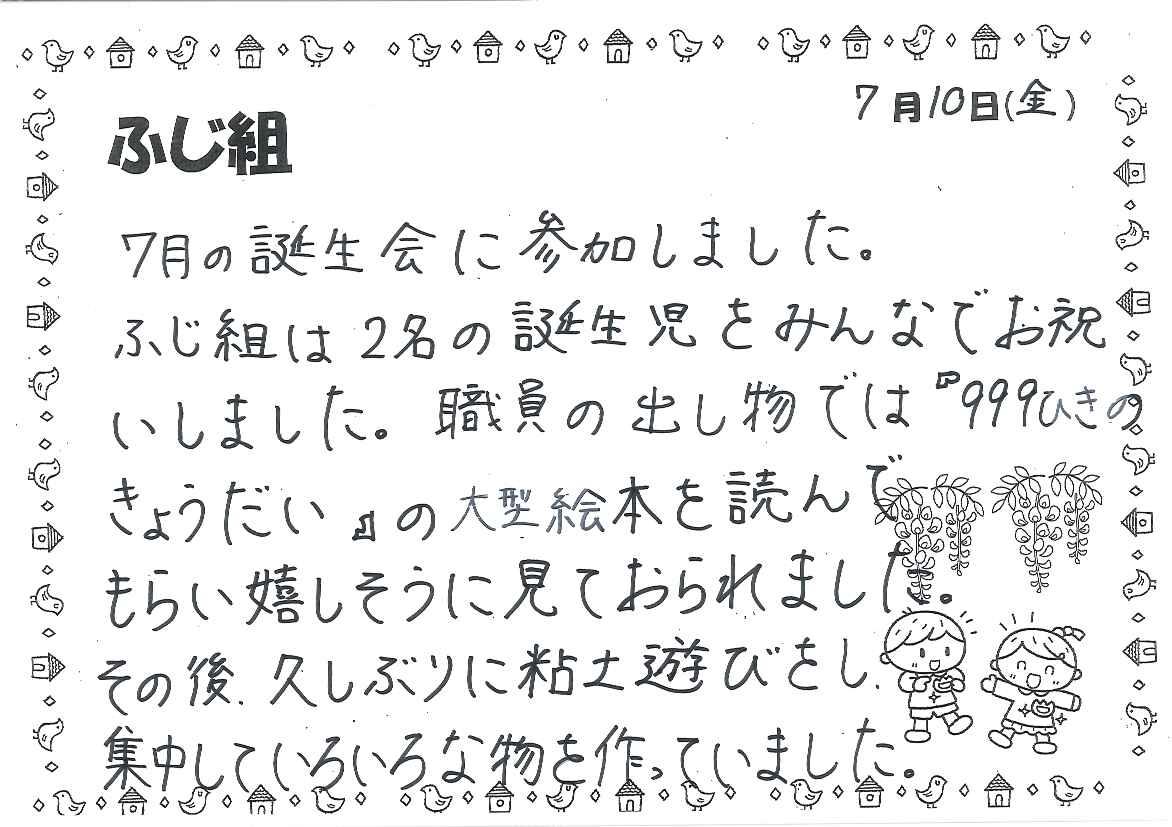 7月10日(金)
ふじ組
7月の誕生会に参加しました。
ふじ組は2名の誕生児をみんなでお祝
いしました。職員の出し物では『999ひきの
きょうだい』の大型絵本を読んで
もらい嬉しそうに見ておられました。
その後、久しぶりに粘土遊びをし、
集中していろいろな物を作っていました。